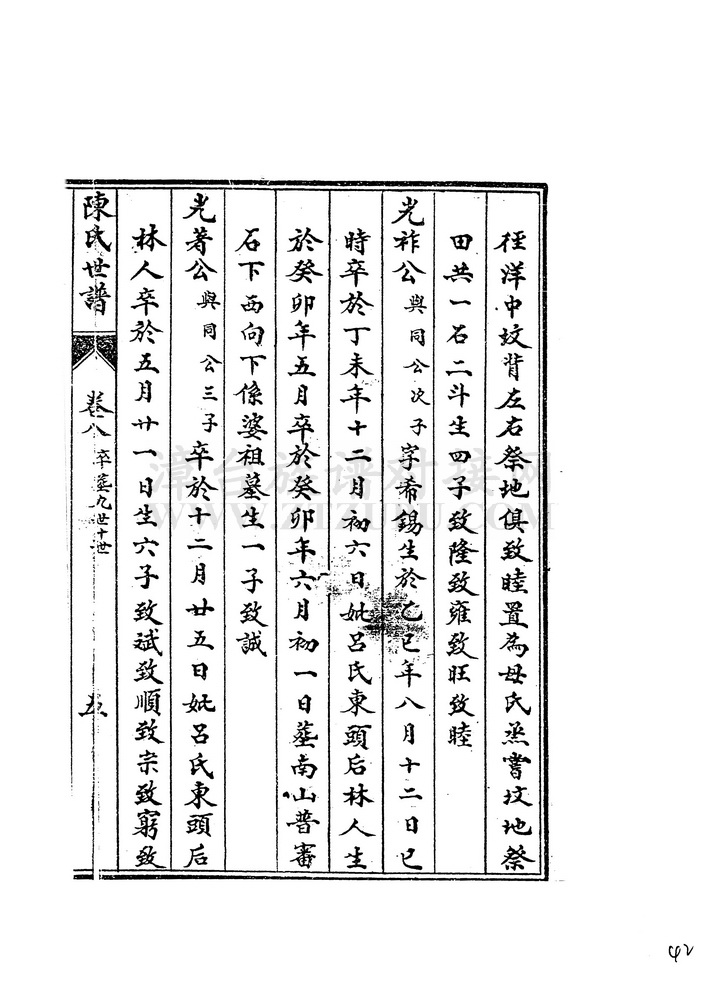 徑洋中坟背左右祭地俱致睦置為母氏烝嘗坟地祭
田共一石二斗生四子致隆致雍致旺致睦
光祚公與同公次子字希錫生於乙巳年八月十二日巳
時卒於丁未年十二月初六日妣呂氏東頭后林人生
於癸卯年五月卒於癸卯年六月初一日墓南山普審
石下西向下係婆祖墓生一子致誠
光著公與同公三子卒於十二月廿五日妣呂氏東頭后
林人卒於五月廿一日生六子致斌致順致宗致窮致
陳氏世譜
卷八
卒墓九世十世
五
漳台族谱对接网
WWW.ZTZUPU.COM
42